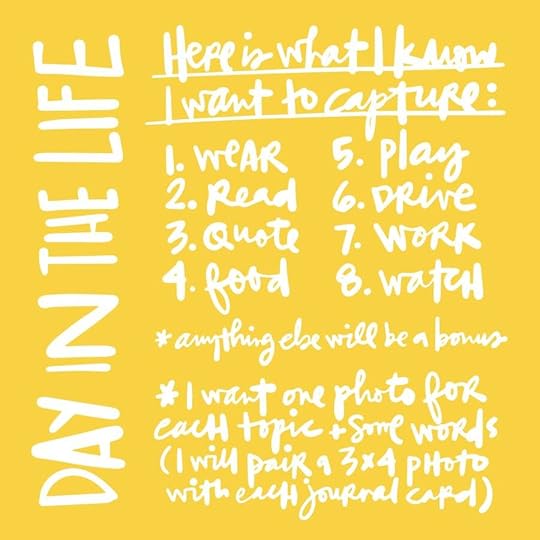 DAY IN THE LIFE
Here is what I know
I want to capture:
1. WEAR
2. Read
3. Quote
4. food
5. play
6. DRIVE
7. WORK
8. watch
*anything else will be a bonus
*I want one photo for
each topic + some words
(I will pair a 3x4 photo
with each journal card)